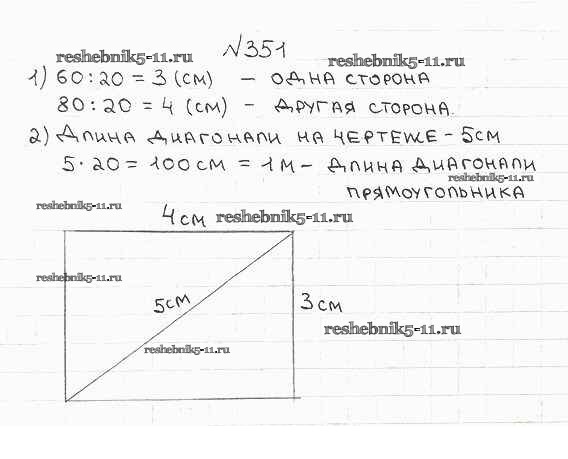 №351
reshebnik5-11.ru
reshebnik5-11.ru
1) 60 : 20 = 3 (см) – одна сторона
80 : 20 = 4 (см) – другая сторона.
2) Длина диагонали на чертеже – 5см
5 · 20 = 100 см = 1 м – длина диагонали
reshebnik5-11.ru
прямоугольника
reshebnik5-11.ru
4 см
reshebnik5-11.ru
reshebnik5-11.ru
5см
3 см
reshebnik5-11.ru
reshebnik5-11.ru